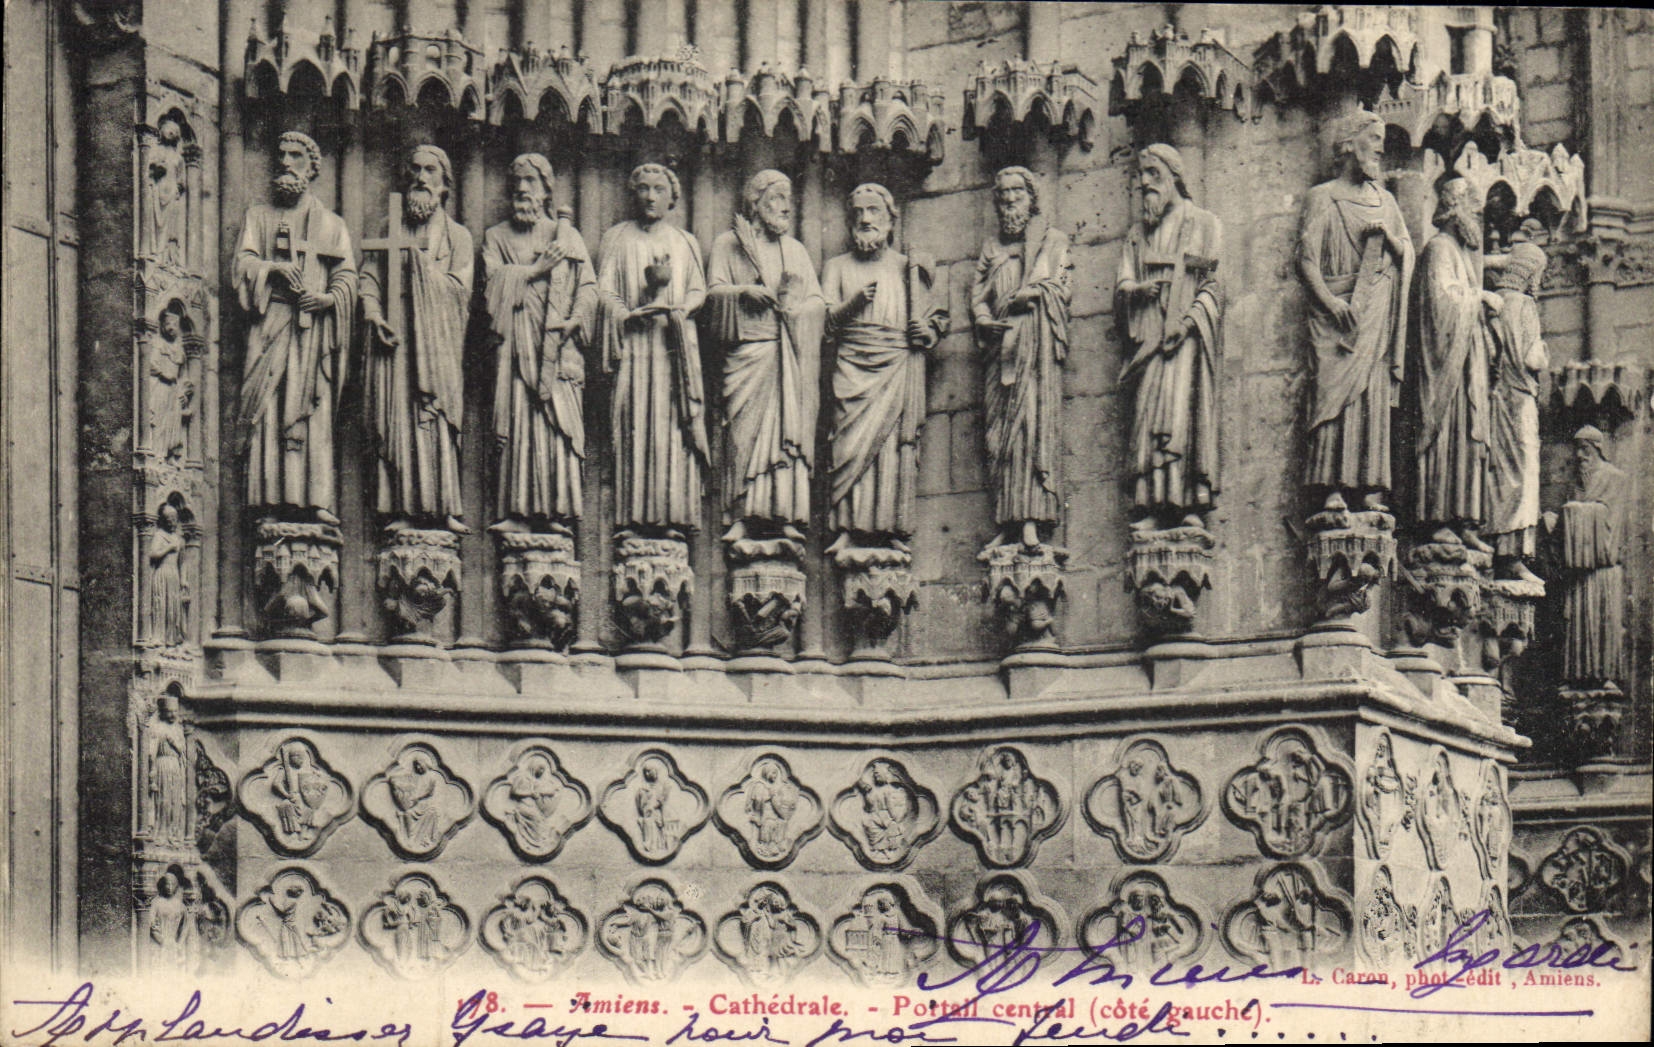 L. Caron, phot-édit, Amiens.
118. — Amiens. - Cathédrale. - Portail central (côté gauche).
Amiens
Applaudissez Ysaye pour moi jeudi . . . . . .